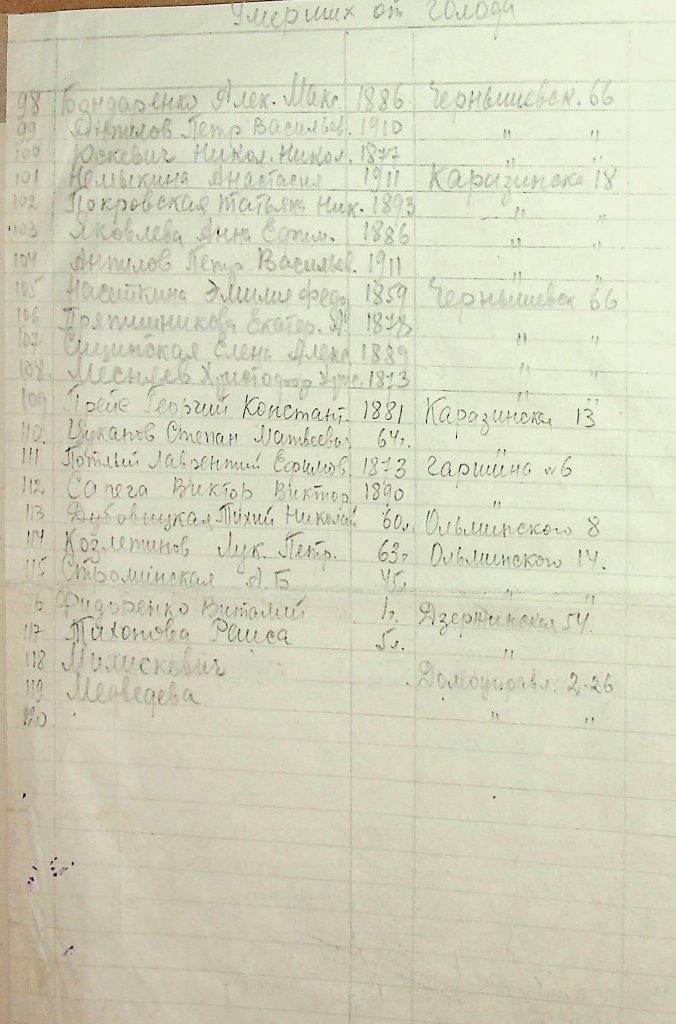 Умерших от голода
98 Бондаренко Алек. Мак. 1886 Чернышевск. 66
99 Анпилов Петр Васильев. 1910 " "
100 Юскевич Никол. Никол. 1877 " "
101 Немыкина Анастасия 1911 Каразинска 18
102 Покровская Татьяна Ник. 1893 " "
103 Яковлева Анна Ефим. 1886 " "
104 Анпилов Петр Васильев. 1911 " "
105 Насеткина Эмилия Федо 1859 Чернышевск 66
106 Пряпишникова Екатер. 1878
107 Сицинская Елена Алекс 1889 " "
108. Месняев Христофор Хрис. 1873 " "
109 Прейс Георгий Констант. 1881 Каразинская 13
110. Цуканов Степан Матвеевич 64г. "
111 Лаврентий Ефимов. 1873 Гаршина №6
112 Сапега Виктор Виктор 1890 "
113 Дубовицкая Тихий Николай 60л. Ольминского 8
114 Козлетинов Лук. Петр. 63г Ольминского 14.
115 Строминская А.Б 45л. " "
116 Фидоренко Виталий 1г. Дзержинская 54.
117 Тихонова Раиса 5л. "
118 Милискевич Домоуправл. 2-26
119 Медведева
120. " "